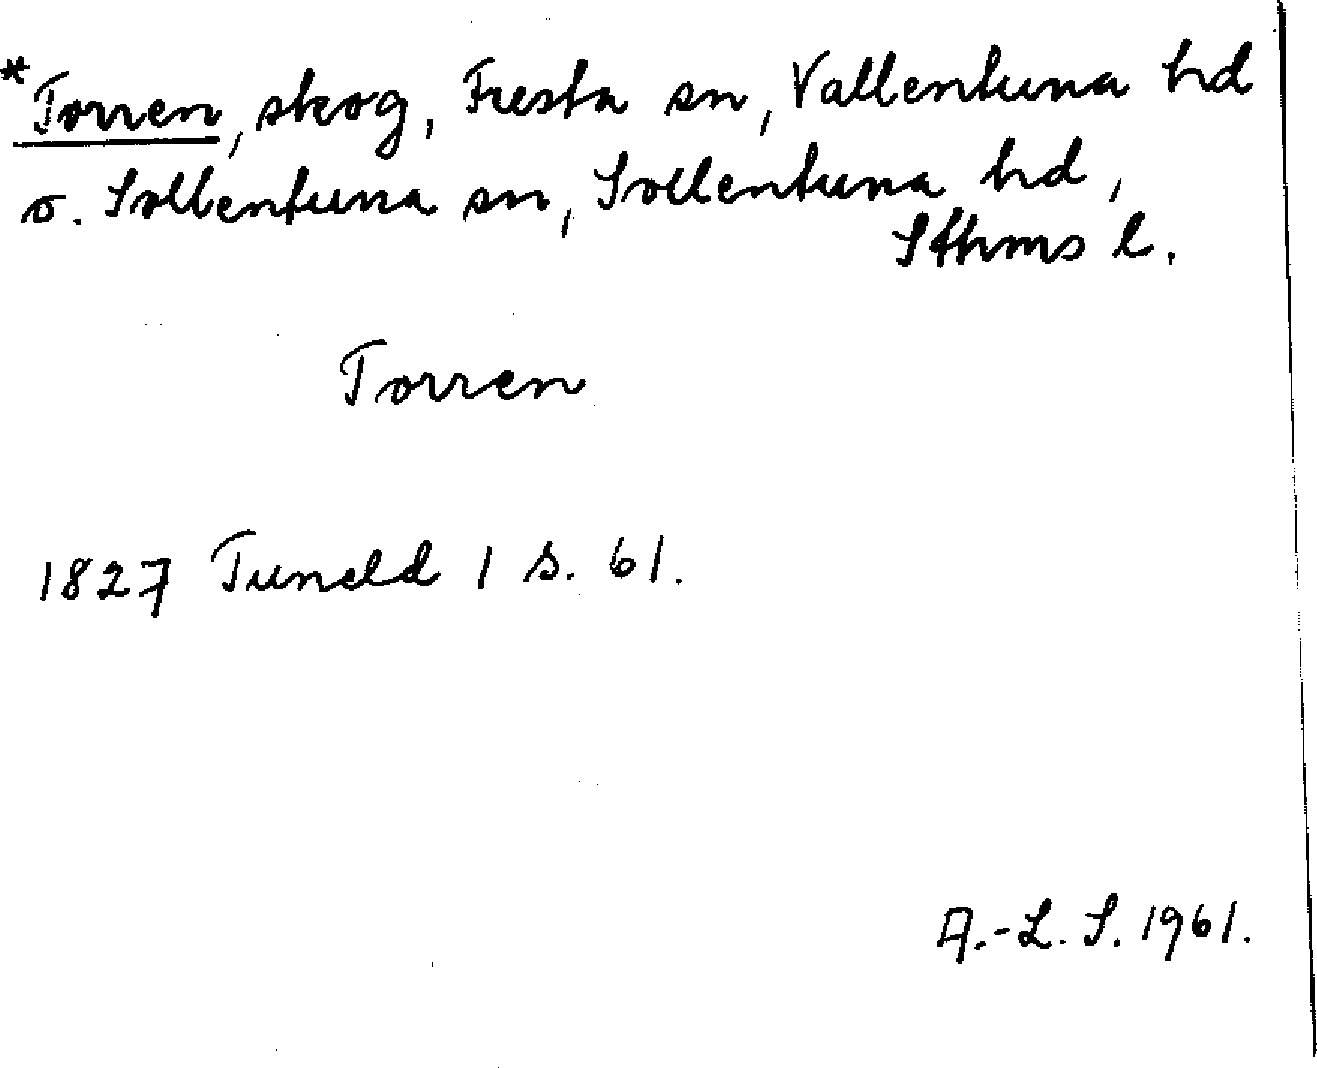 *Torren, skog, Fresta sn, Vallentuna hd
o. Sollentuna sn, Sollentuna hd,
Sthms l.
Torren
1827 Tuneld 1 s. 61.
A.-L. S. 1961.